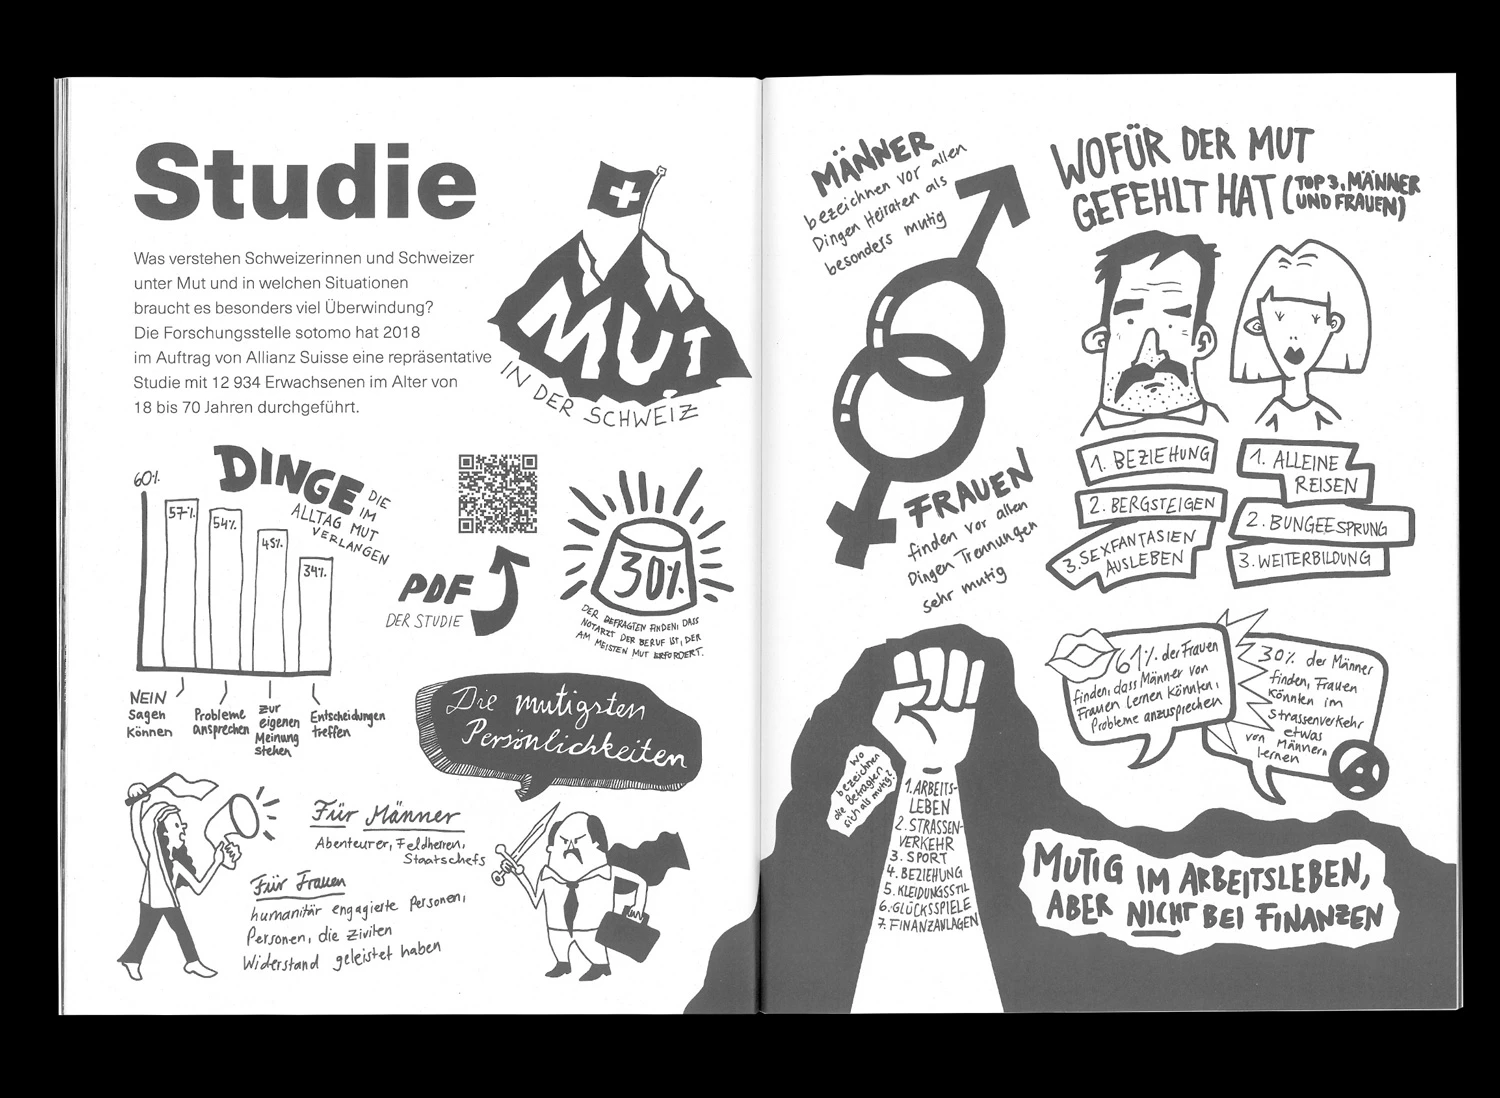 Studie
Was verstehen Schweizerinnen und Schweizer
unter Mut und in welchen Situationen
braucht es besonders viel Überwindung?
Die Forschungsstelle sotomo hat 2018
im Auftrag von Allianz Suisse eine repräsentative
Studie mit 12 934 Erwachsenen im Alter von
18 bis 70 Jahren durchgeführt.
MUT
IN DER SCHWEIZ
DINGE DIE
IM
ALLTAG MUT
VERLANGEN
60%
57%
54%
45%
34%
NEIN
Sagen
können
Probleme
ansprechen
zur
eigenen
Meinung
stehen
Entscheidungen
treffen
PDF
DER STUDIE
30%
DER BEFRAGTEN FINDEN, DASS
NOTARZT DER BERUF IST, DER
AM MEISTEN MUT ERFORDERT.
Die mutigsten
Persönlichkeiten
Für Männer
Abenteurer, Feldherren,
Staatschefs
Für Frauen
humanitär engagierte Personen,
Personen, die zivilen
Widerstand geleistet haben
MÄNNER
bezeichnen vor allen
Dingen Heiraten als
besonders mutig
FRAUEN
finden vor allen
Dingen Trennungen
sehr mutig
WOFÜR DER MUT
GEFEHLT HAT (TOP 3, MÄNNER
UND FRAUEN)
1. BEZIEHUNG
2. BERGSTEIGEN
3. SEXFANTASIEN
AUSLEBEN
1. ALLEINE
REISEN
2. BUNGEESPRUNG
3. WEITERBILDUNG
61% der Frauen
finden, dass Männer von
Frauen lernen könnten,
Probleme anzusprechen
30% der Männer
finden, Frauen
könnten im
Strassenverkehr
etwas
von Männern
lernen
Wo
bezeichnen
die Befragten
sich als mutig?
1. ARBEITS-
LEBEN
2. STRASSEN-
VERKEHR
3. SPORT
4. BEZIEHUNG
5. KLEIDUNGSSTIL
6. GLÜCKSSPIELE
7. FINANZANLAGEN
MUTIG IM ARBEITSLEBEN,
ABER NICHT BEI FINANZEN